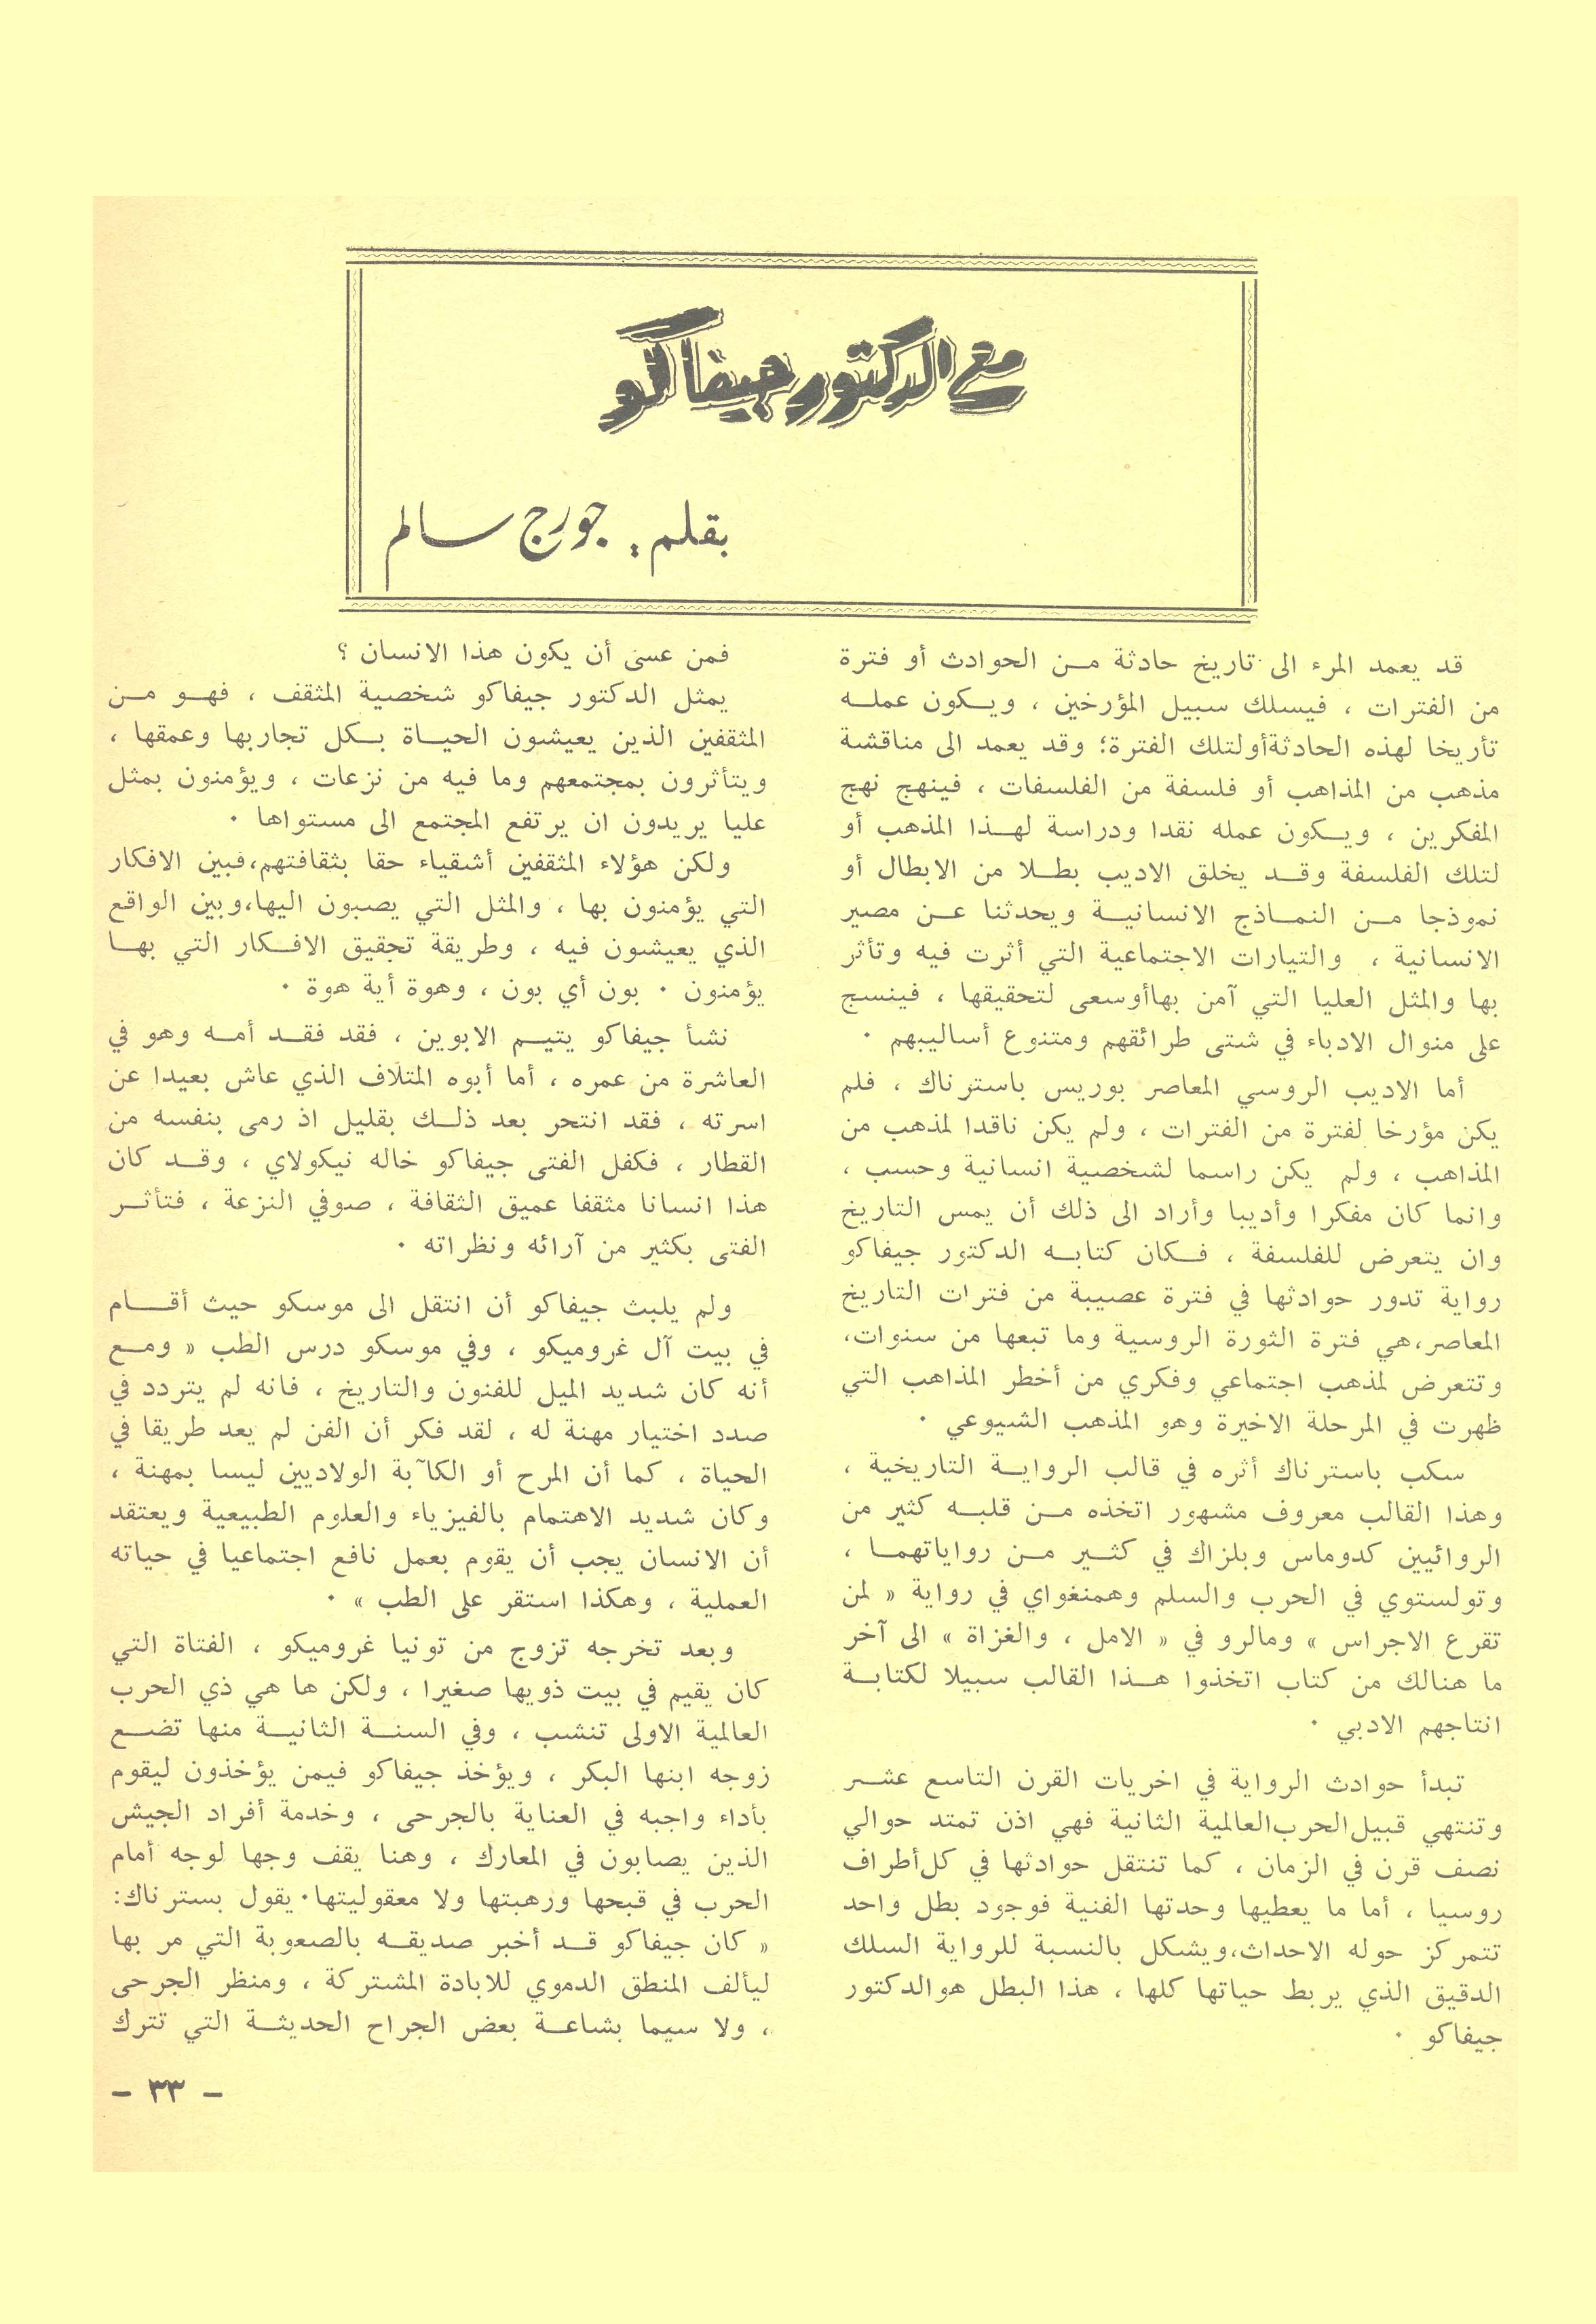 مع الدكتور جيفاكو
بقلم : جورج سالم
قد يعمد المرء الى تاريخ حادثة من الحوادث أو فترة
من الفترات ، فيسلك سبيل المؤرخين ، ويكون عمله
تأريخا لهذه الحادثةأولتلك الفترة؛ وقد يعمد الى مناقشة
مذهب من المذاهب أو فلسفة من الفلسفات ، فينهج نهج
المفكرين ، ويكون عمله نقدا ودراسة لهذا المذهب أو
لتلك الفلسفة وقد يخلق الاديب بطلا من الابطال أو
نموذجا من النماذج الانسانية ويحدثنا عن مصير
الانسانية ، والتيارات الاجتماعية التي أثرت فيه وتأثر
بها والمثل العليا التي آمن بهاأوسعى لتحقيقها ، فينسج
على منوال الادباء في شتى طرائقهم ومتنوع أساليبهم ٠
أما الاديب الروسي المعاصر بوريس باسترناك ، فلم
يكن مؤرخا لفترة من الفترات ، ولم يكن ناقدا لمذهب من
المذاهب ، ولم يكن راسما لشخصية انسانية وحسب ،
وانما كان مفكرا وأديبا وأراد الى ذلك أن يمس التاريخ
وان يتعرض للفلسفة ، فكان كتابه الدكتور جيفاكو
رواية تدور حوادثها في فترة عصيبة من فترات التاريخ
المعاصر،هي فترة الثورة الروسية وما تبعها من سنوات،
وتتعرض لمذهب اجتماعي وفكري من أخطر المذاهب التي
ظهرت في المرحلة الاخيرة وهو المذهب الشيوعي ٠
سكب باسترناك أثره في قالب الرواية التاريخية ،
وهذا القالب معروف مشهور اتخذه من قلبه كثير من
الروائيين كدوماس وبلزاك في كثير من رواياتهما ،
وتولستوي في الحرب والسلم وهمنغواي في رواية « لمن
تقرع الاجراس » ومالرو في « الامل ، والغزاة » الى آخر
ما هنالك من كتاب اتخذوا هذا القالب سبيلا لكتابة
انتاجهم الادبي ٠
تبدأ حوادث الرواية في اخريات القرن التاسع عشر
وتنتهي قبيل‌الحرب‌العالمية الثانية فهي اذن تمتد حوالي
نصف قرن في الزمان ، كما تنتقل حوادثها في كل‌أطراف
روسيا ، أما ما يعطيها وحدتها الفنية فوجود بطل واحد
تتمركز حوله الاحداث،ويشكل بالنسبة للرواية السلك
الدقيق الذي يربط حياتها كلها ، هذا البطل هوالدكتور
جيفاكو ٠
فمن عسى أن يكون هذا الانسان ؟
يمثل الدكتور جيفاكو شخصية المثقف ، فهو من
المثقفين الذين يعيشون الحياة بكل تجاربها وعمقها ،
ويتأثرون بمجتمعهم وما فيه من نزعات ، ويؤمنون بمثل
عليا يريدون ان يرتفع المجتمع الى مستواها ٠
ولكن هؤلاء المثقفين أشقياء حقا بثقافتهم،فبين الافكار
التي يؤمنون بها ، والمثل التي يصبون اليها،وبين الواقع
الذي يعيشون فيه ، وطريقة تحقيق الافكار التي بها
يؤمنون ٠ بون أي بون ، وهوة أية هوة ٠
نشأ جيفاكو يتيم الابوين ، فقد فقد أمه وهو في
العاشرة من عمره ، أما أبوه المتلاف الذي عاش بعيدا عن
اسرته ، فقد انتحر بعد ذلك بقليل اذ رمى بنفسه من
القطار ، فكفل الفتى جيفاكو خاله نيكولاي ، وقد كان
هذا انسانا مثقفا عميق الثقافة ، صوفي النزعة ، فتأثر
الفتى بكثير من آرائه ونظراته ٠
ولم يلبث جيفاكو أن انتقل الى موسكو حيث أقام
في بيت آل غروميكو ، وفي موسكو درس الطب « ومع
أنه كان شديد الميل للفنون والتاريخ ، فانه لم يتردد في
صدد اختيار مهنة له ، لقد فكر أن الفن لم يعد طريقا في
الحياة ، كما أن المرح أو الكآبة الولاديين ليسا بمهنة ،
وكان شديد الاهتمام بالفيزياء والعلوم الطبيعية ويعتقد
أن الانسان يجب أن يقوم بعمل نافع اجتماعيا في حياته
العملية ، وهكذا استقر على الطب » ٠
وبعد تخرجه تزوج من تونيا غروميكو ، الفتاة التي
كان يقيم في بيت ذويها صغيرا ، ولكن ها هي ذي الحرب
العالمية الاولى تنشب ، وفي السنة الثانية منها تضع
زوجه ابنها البكر ، ويؤخذ جيفاكو فيمن يؤخذون ليقوم
بأداء واجبه في العناية بالجرحى ، وخدمة أفراد الجيش
الذين يصابون في المعارك ، وهنا يقف وجها لوجه أمام
الحرب في قبحها ورهبتها ولا معقوليتها٠ يقول بسترناك:
« كان جيفاكو قد أخبر صديقه بالصعوبة التي مر بها
ليألف المنطق الدموي للابادة المشتركة ، ومنظر الجرحى
، ولا سيما بشاعة بعض الجراح الحديثة التي تترك
– ٣٣ –